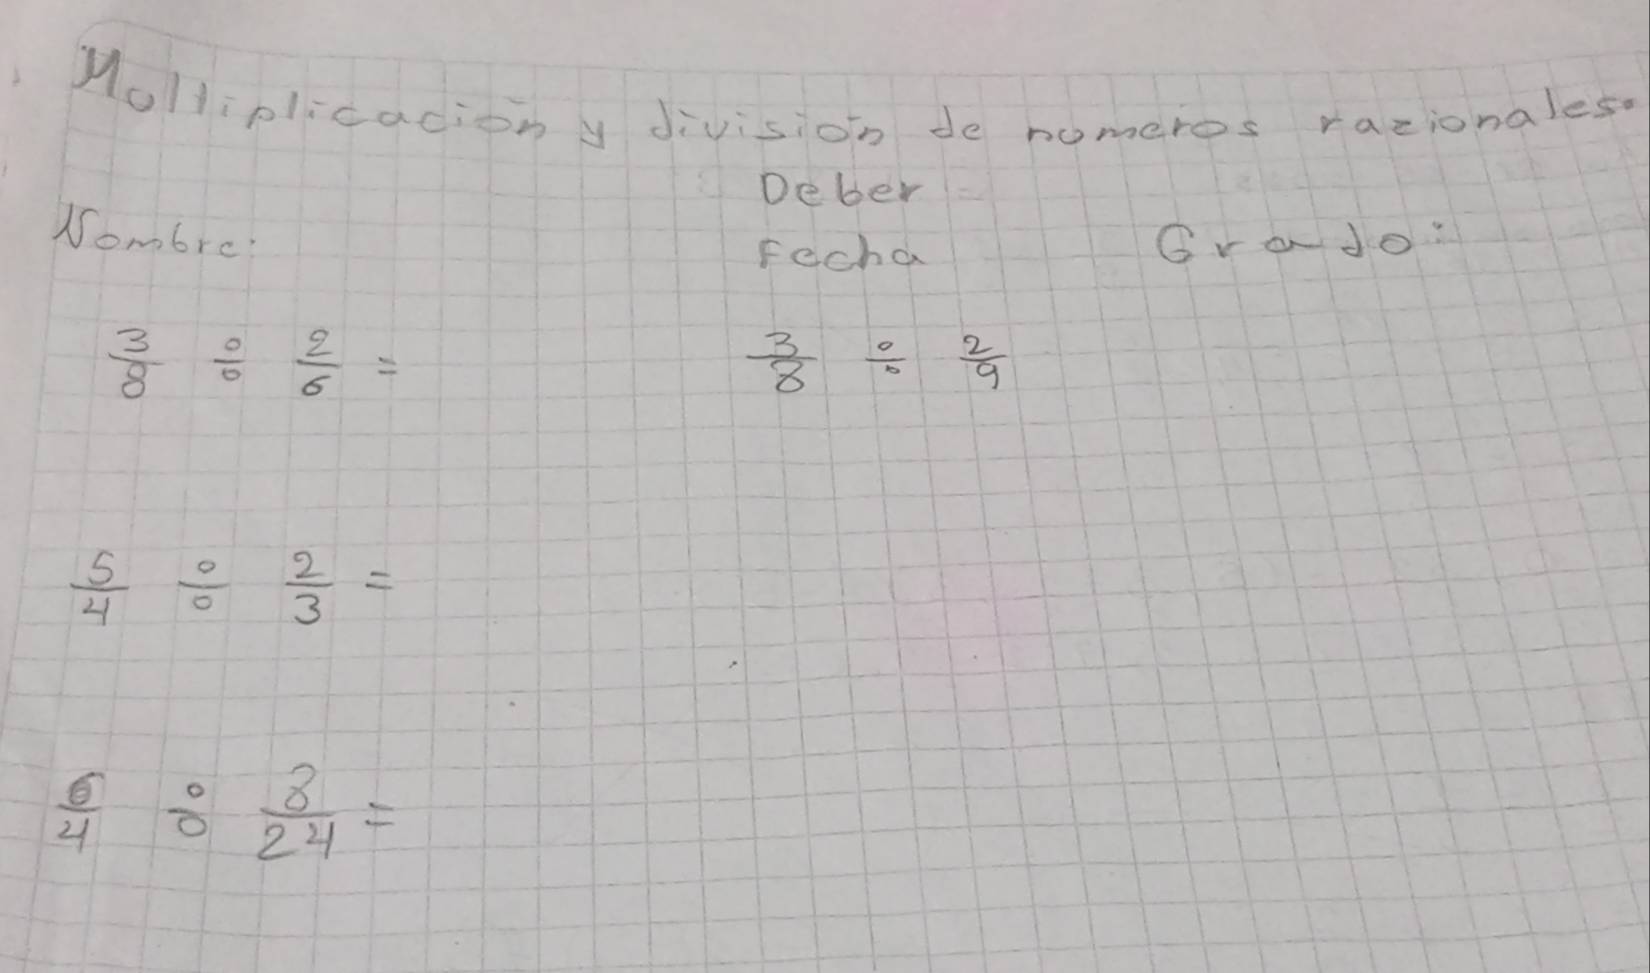 Moltiplicación y división de nomeros razionales.
Deber
Nombre: Fecha Grado:
3/8 ÷ 2/6 = 3/8 ÷ 2/9
5/4 ÷ 2/3 =
6/4 ÷ 8/24 =